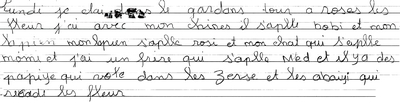 lundi je dans le gardons tour a roses les
fleur j'ai avec mon chines il s'aplle bobi et mon
lapien monlapien s'aplle rosi et mon chat qui s'aplle
momi et j'ai un frere qui s'aplle Med et ilya des
papiye qui vole dans les Zerse et les abaiyi qui
les fleur